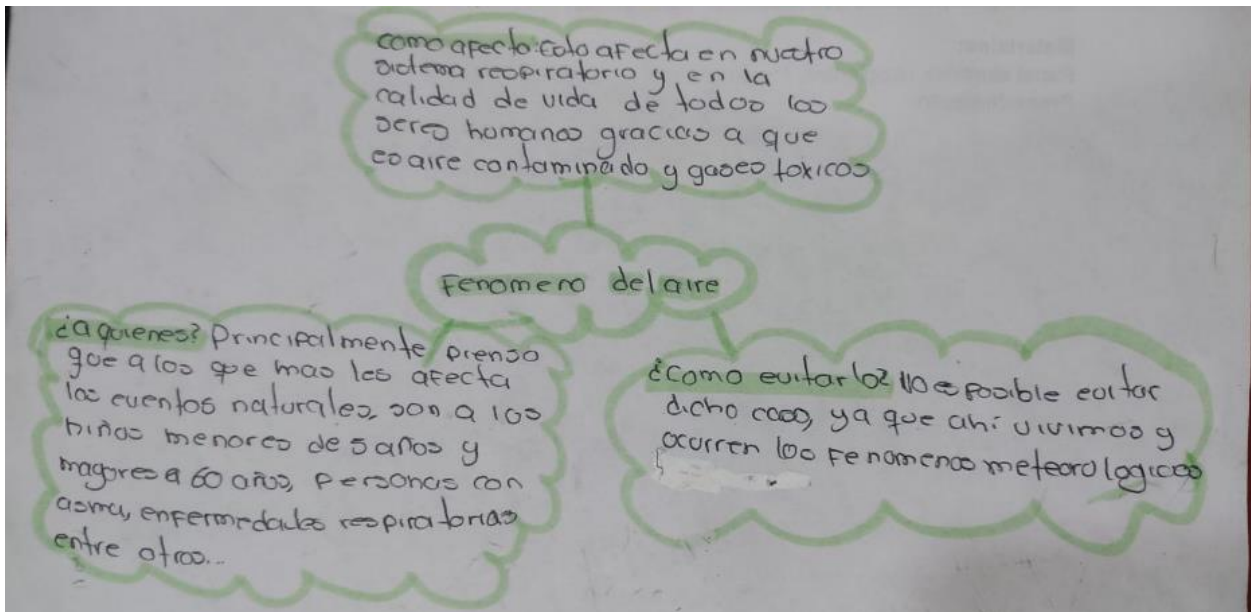 como afecto: esto afecta en nuestro
sistema respiratorio y en la
calidad de vida de todos los
seres humanos gracias a que
es aire contaminado y gases toxicos
Fenomeno del aire
¿a quienes? Principalmente pienso
que a los que mas les afecta
los eventos naturales, son a los
niños menores de 5 años y
mayores a 60 años, personas con
asma, enfermedades respiratorias
entre otros...
¿como evitarlo? No es posible evitar
dicho caso, ya que ahí vivimos y
ocurren los fenomenos meteorologicos